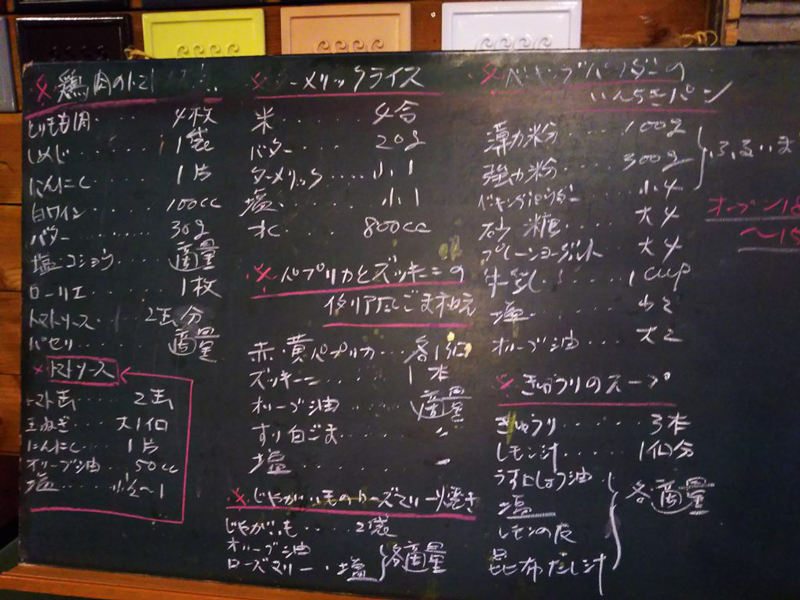 ※鶏肉のトマト
とりもも肉 4枚
しめじ 1袋
にんにく 1片
白ワイン 100cc
バター 30g
塩・コショウ 適量
ローリエ 1枚
トマトソース 2缶分
パセリ 適量
※トマトソース
トマト缶 2缶
玉ねぎ 大1個
にんにく 1片
オリーブ油 50cc
塩 小½〜1
※ターメリックライス
米 4合
バター 20g
ターメリック 小1
塩 小1
水 800cc
※パプリカとズッキーニの
イタリアンごま和え
赤・黄パプリカ 各1個
ズッキーニ 1本
オリーブ油 適量
すり白ごま 〃
塩 〃
※じゃがいものローズマリー焼き
じゃがいも 2袋
オリーブ油
ローズマリー・塩 各適量
※ベーキングパウダーの
いんちきパン
薄力粉 100g
強力粉 300g
ふるいます
ベーキングパウダー 小4
砂糖 大4
プレーンヨーグルト 大4
牛乳 1cup
塩
オリーブ油 大2
オーブン18
〜15
※きゅうりのスープ
きゅうり 3本
レモン汁 1個分
うす口しょう油
塩
レモンの皮
昆布だし汁
各適量